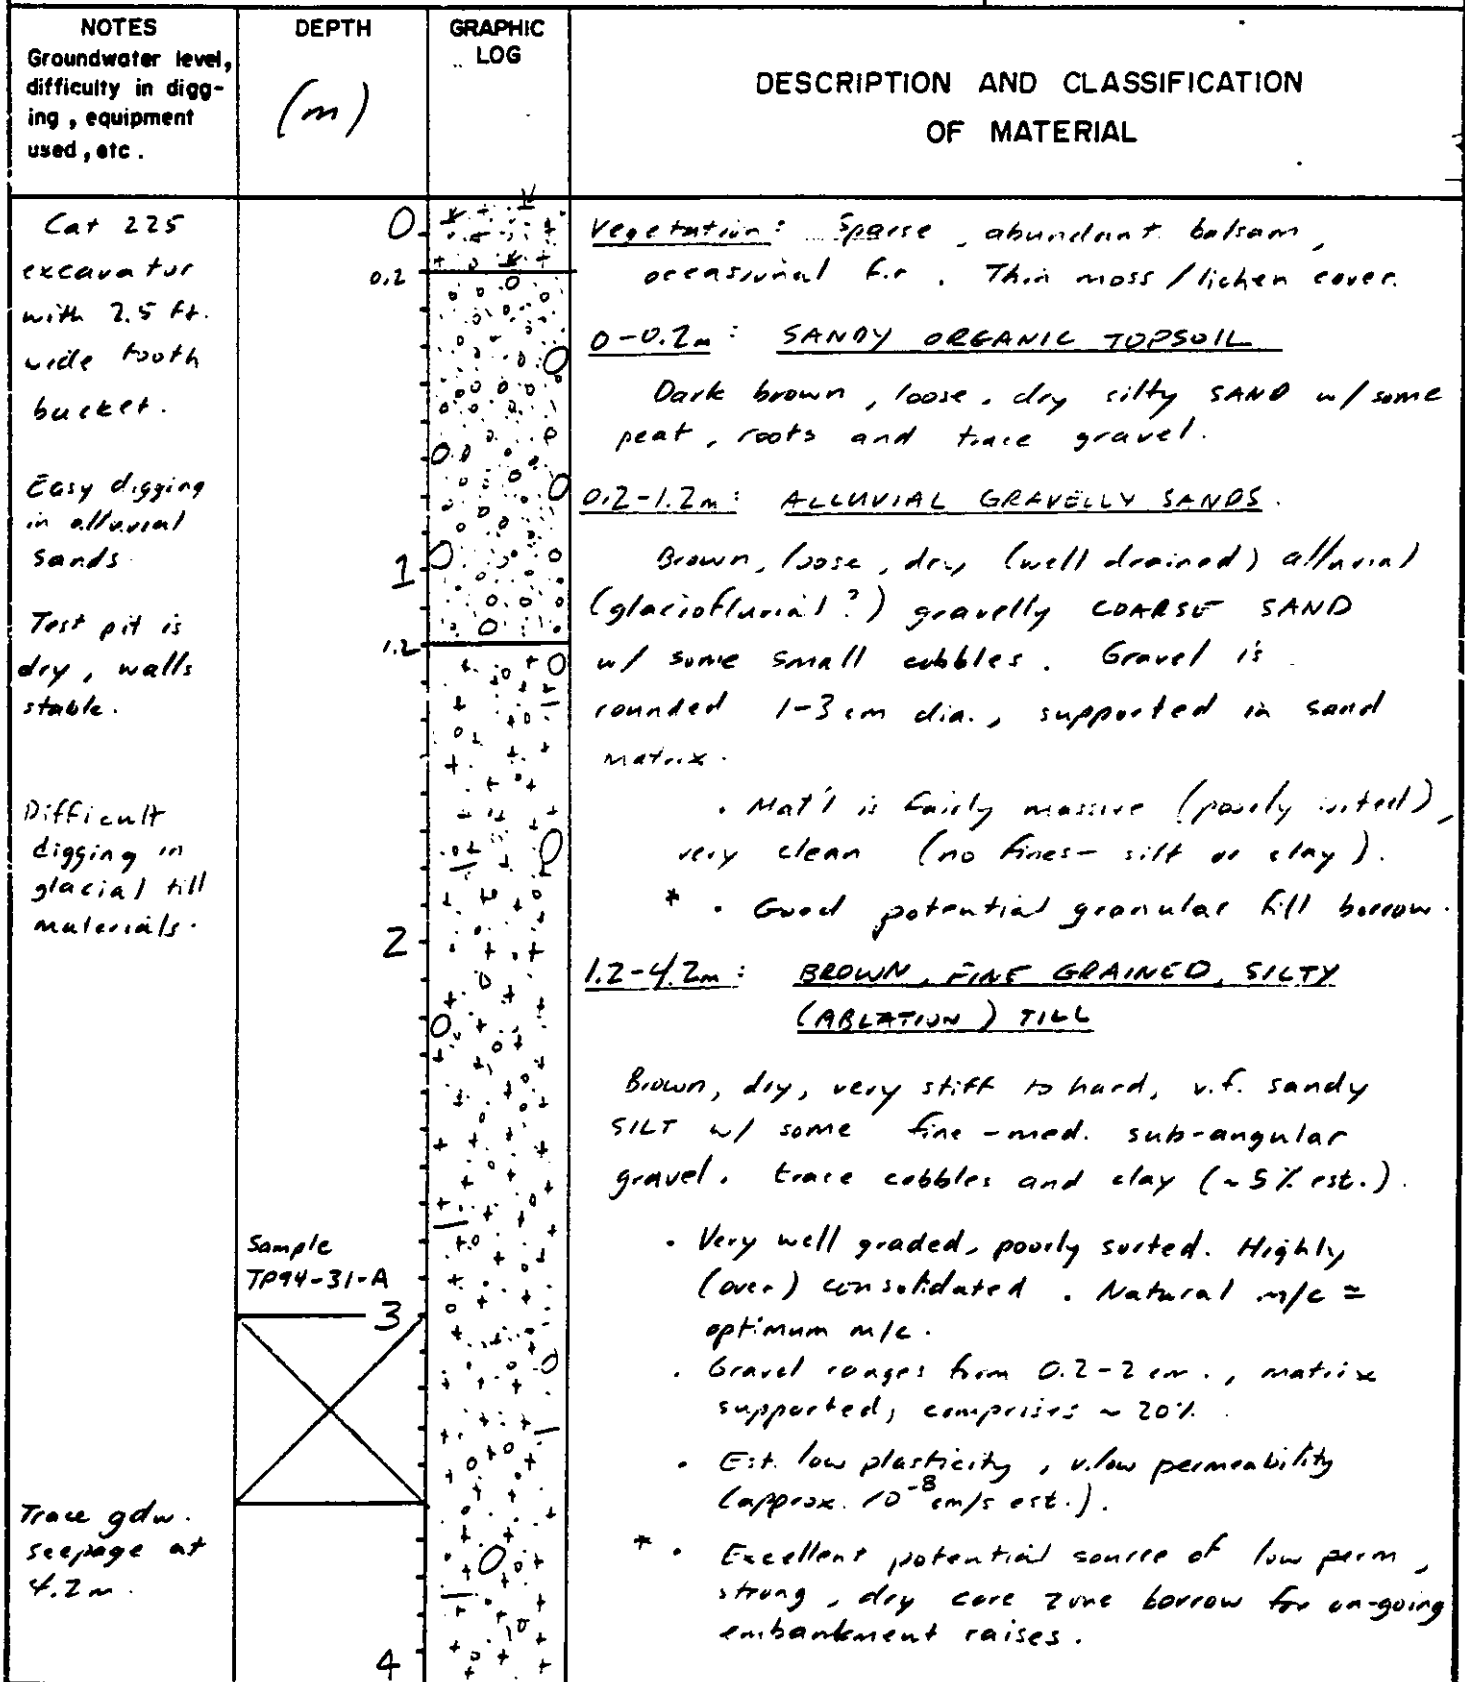 NOTES
Groundwater level,
difficulty in digg-
ing , equipment
used , etc .
DEPTH
(m)
GRAPHIC
LOG
DESCRIPTION AND CLASSIFICATION
OF MATERIAL
Cat 225
excavator
with 2.5 ft.
wide tooth
bucket.
Easy digging
in alluvial
sands.
Test pit is
dry, walls
stable.
Difficult
digging in
glacial till
materials.
Trace gdw.
seepage at
4.2m.
0
0.2
1
1.2
2
Sample
TP94-31-A
3
4
Vegetation: Sparse, abundant balsam,
occasional fir. Thin moss/lichen cover.
0-0.2m: SANDY ORGANIC TOPSOIL
Dark brown, loose, dry silty SAND w/ some
peat, roots and trace gravel.
0.2-1.2m: ALLUVIAL GRAVELLY SANDS.
Brown, loose, dry (well drained) alluvial
(glaciofluvial?) gravelly COARSE SAND
w/ some small cobbles. Gravel is
rounded 1-3 cm dia., supported in sand
matrix.
. Mat'l is fairly massive (poorly sorted),
very clean (no fines- silt or clay).
* . Good potential granular fill borrow.
1.2-4.2m: BROWN, FINE GRAINED, SILTY
(ABLATION) TILL
Brown, dry, very stiff to hard, v.f. sandy
SILT w/ some fine-med. sub-angular
gravel. trace cobbles and clay (~5% est.).
. Very well graded, poorly sorted. Highly
(over) consolidated. Natural m/c =
optimum m/c.
. Gravel ranges from 0.2-2 cm., matrix
supported, comprises ~20%.
. Est. low plasticity, v.low permeability
(approx. 10⁻⁸ cm/s est.).
* . Excellent potential source of low perm,
strong, dry core zone borrow for on-going
embankment raises.